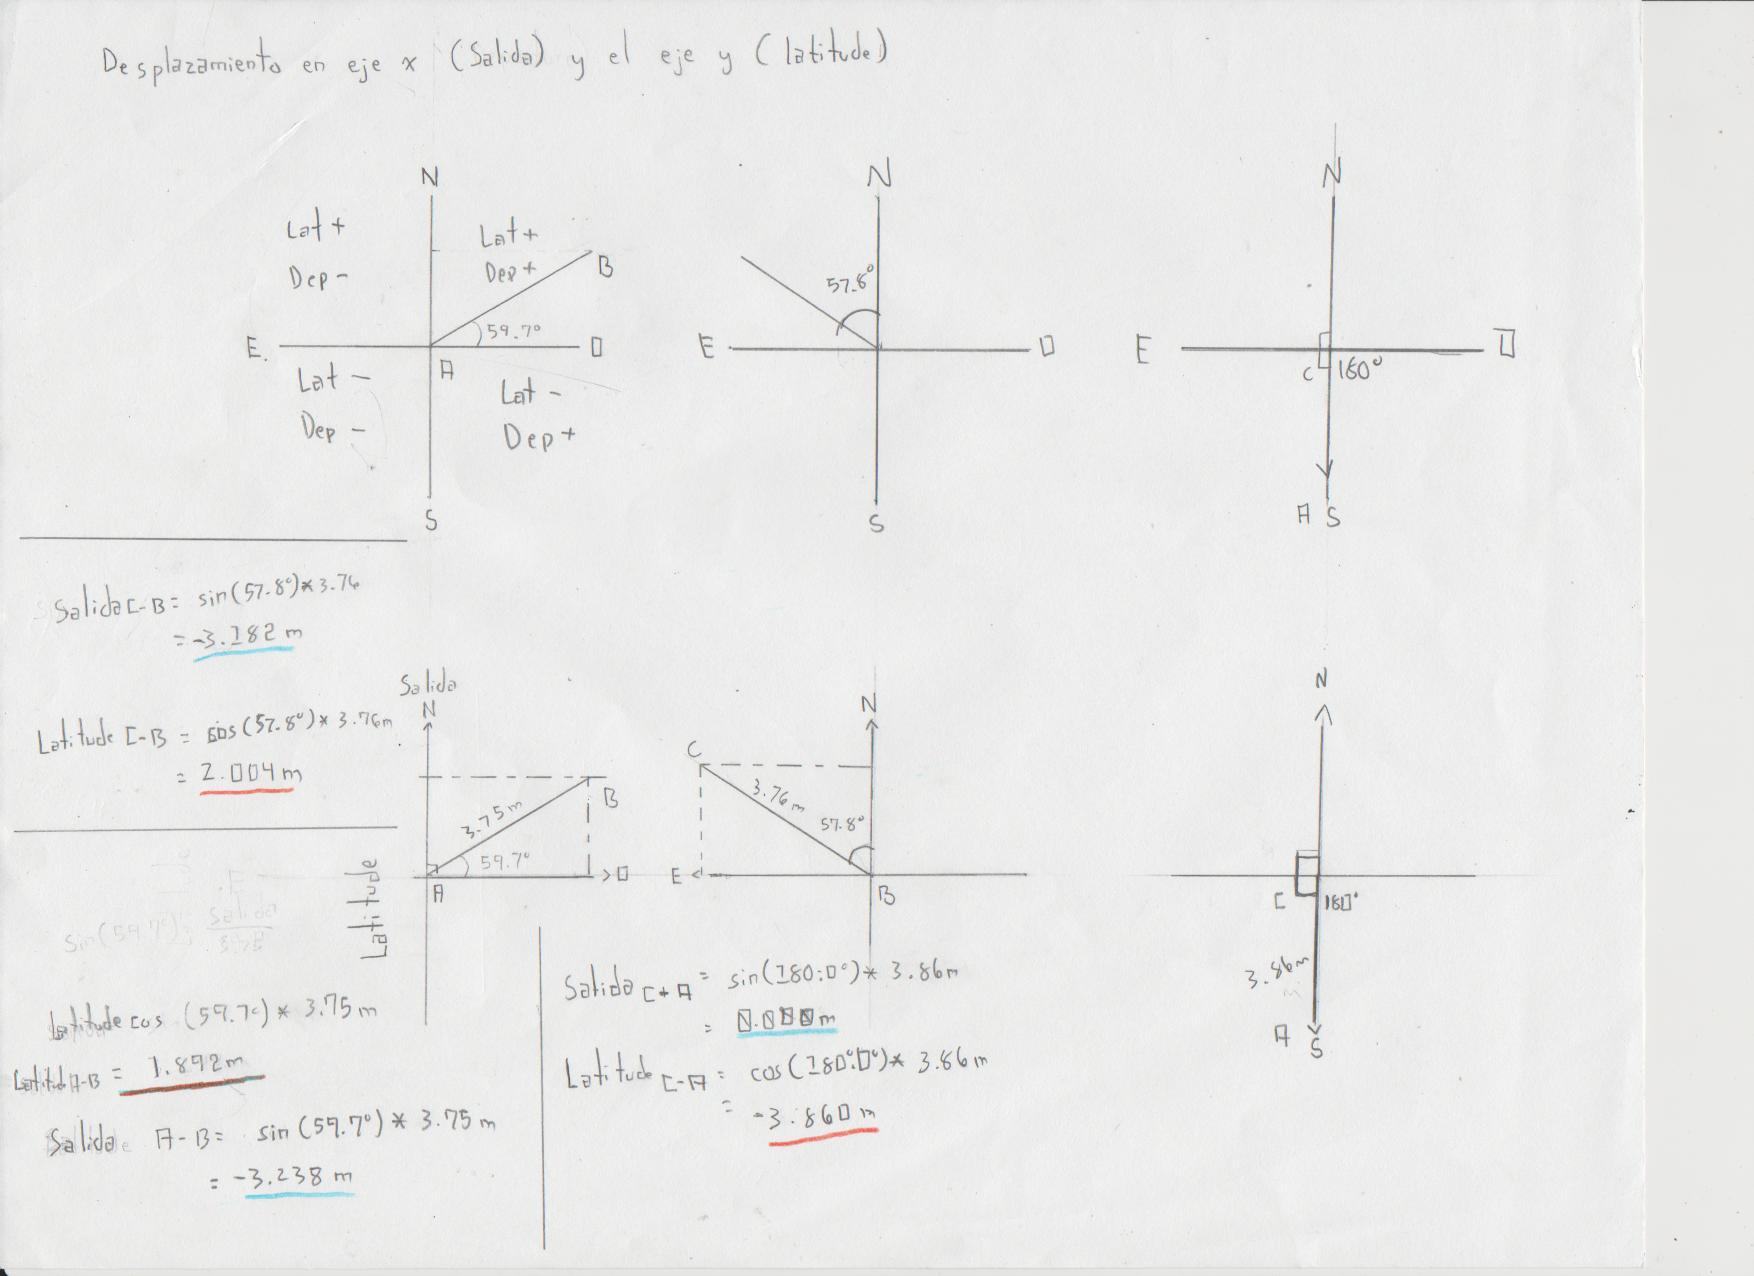 Desplazamiento en eje x (Salida) y el eje y (latitude)
N
Lat +
Dep -
Lat +
Dep +
B
59.7°
E.
O
A
Lat -
Dep -
Lat -
Dep +
S
N
57.8°
E
O
S
N
E
O
C
180°
A S
Salida C-B = sin(57.8°)* 3.76
= -3.182 m
Latitude C-B = cos(57.8°)* 3.76m
= 2.004 m
Salida
N
3.75m
B
59.7°
A
O
Latitude
N
C
3.76 m
57.8°
E
B
N
C
180°
3.86m
A
S
sin(59.7°)= Salida
Latitude cos (59.7°)* 3.75 m
Latitud A-B = 1.892m
Salida A-B = sin(59.7°)* 3.75 m
= -3.238 m
Salida C+A = sin(180:0°)* 3.86m
= 0.000m
Latitude C-A = cos(180°:0°)* 3.86 m
= -3.860 m